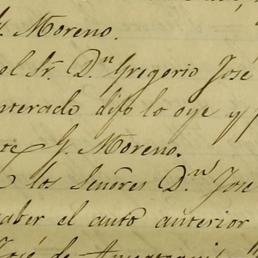 G. Moreno.
ol Sr. D.n Gregorio José
nterado dijo lo oye y f
te G. Moreno.
los Señores D.n Jose
saber el auto anterior
José de